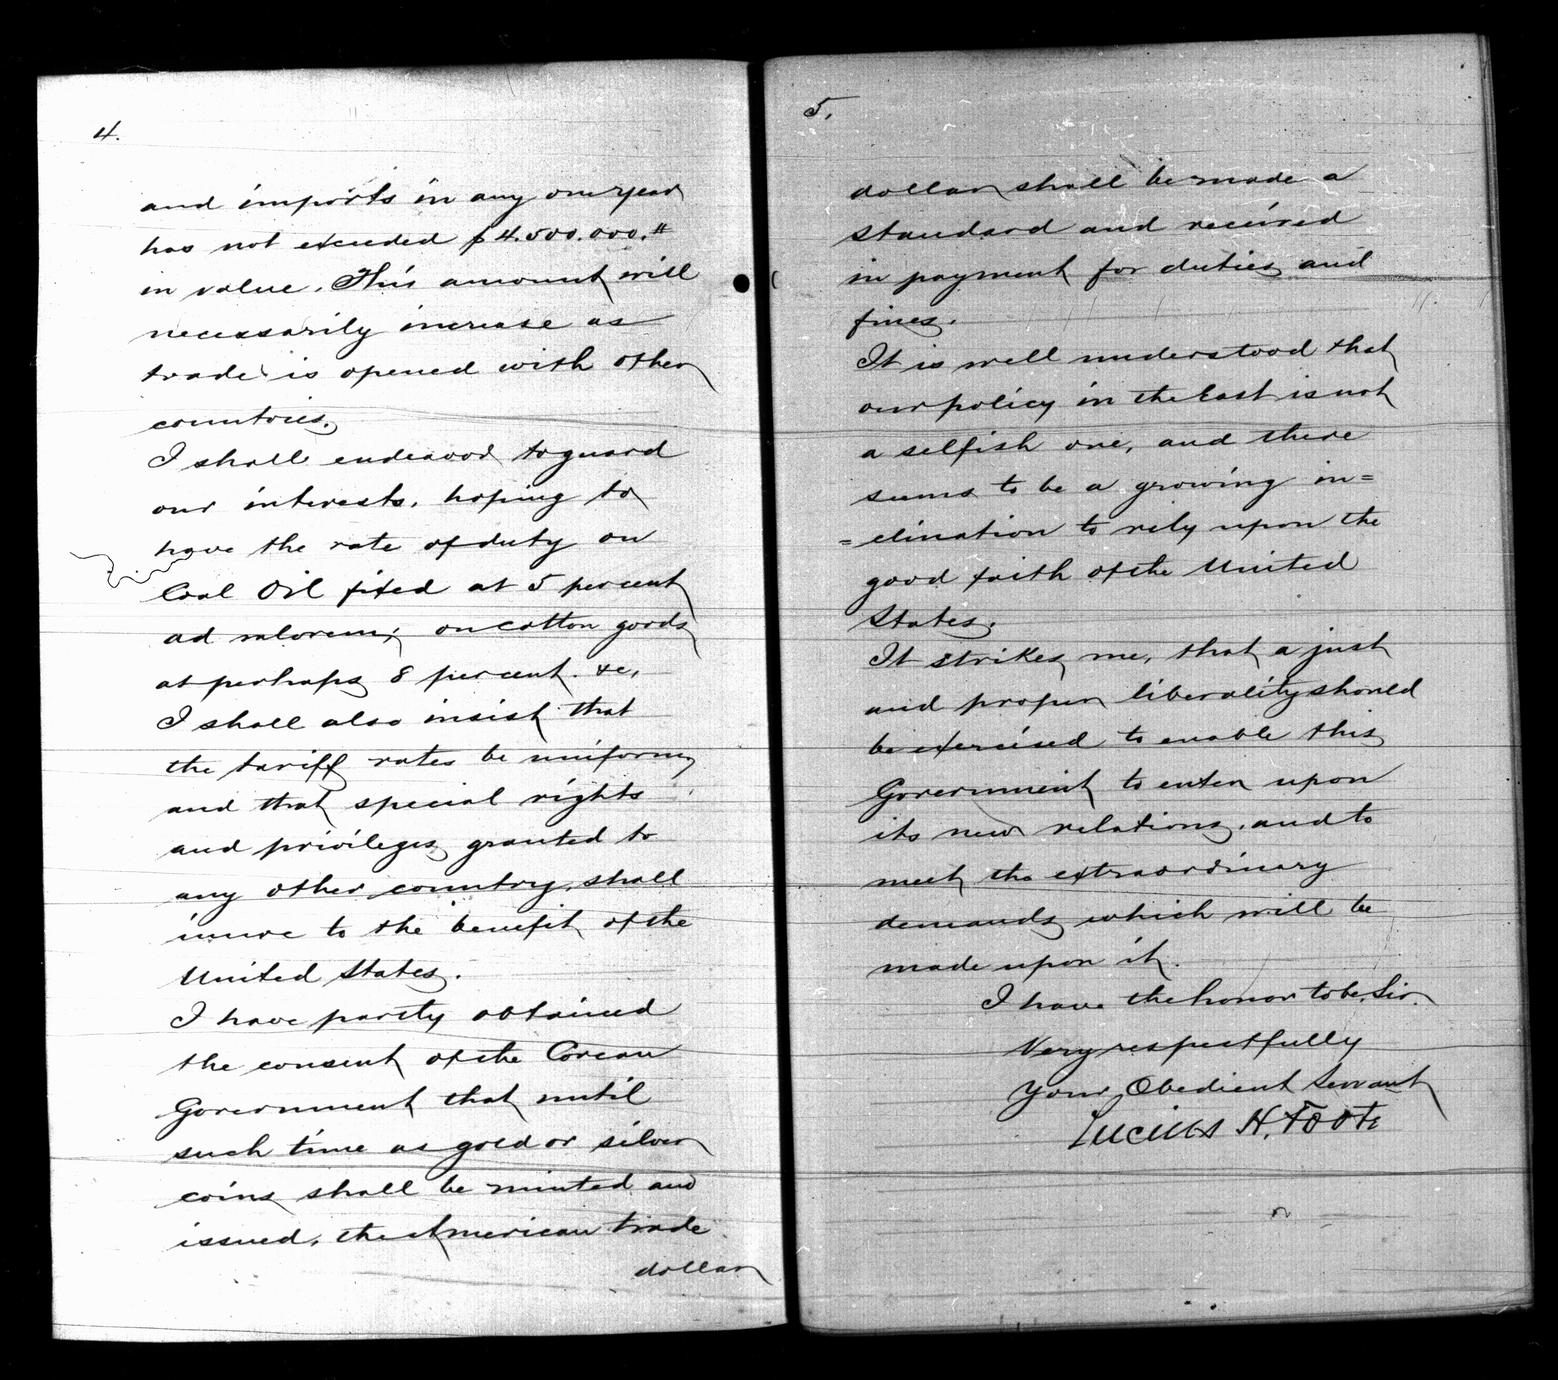 4.
and imports in any one year
has not exceeded $4.500.000.
in value. This amount will
necessarily increase as
trade is opened with other
countries.
I shall endeavor to guard
our interests, hoping to
have the rate of duty on
Coal Oil fixed at 5 percent
ad valorem; on cotton goods
at perhaps 8 percent. &c,
I shall also insist that
the tariff rates be uniform,
and that special rights
and privileges granted to
any other country, shall
inure to the benefit of the
United States.
I have partly obtained
the consent of the Corean
Government that until
such time as gold or silver
coins shall be minted and
issued, the American trade
dollar
5.
dollar shall be made a
standard and received
in payment for duties and
fines.
It is well understood that
our policy in the East is not
a selfish one, and there
seems to be a growing in=
=clination to rely upon the
good faith of the United
States.
It strikes me, that a just
and proper liberality should
be exercised to enable this
Government to enter upon
its new relations, and to
meet the extraordinary
demands which will be
made upon it.
I have the honor to be, Sir.
Very respectfully
Your Obedient Servant
Lucius H. Foote